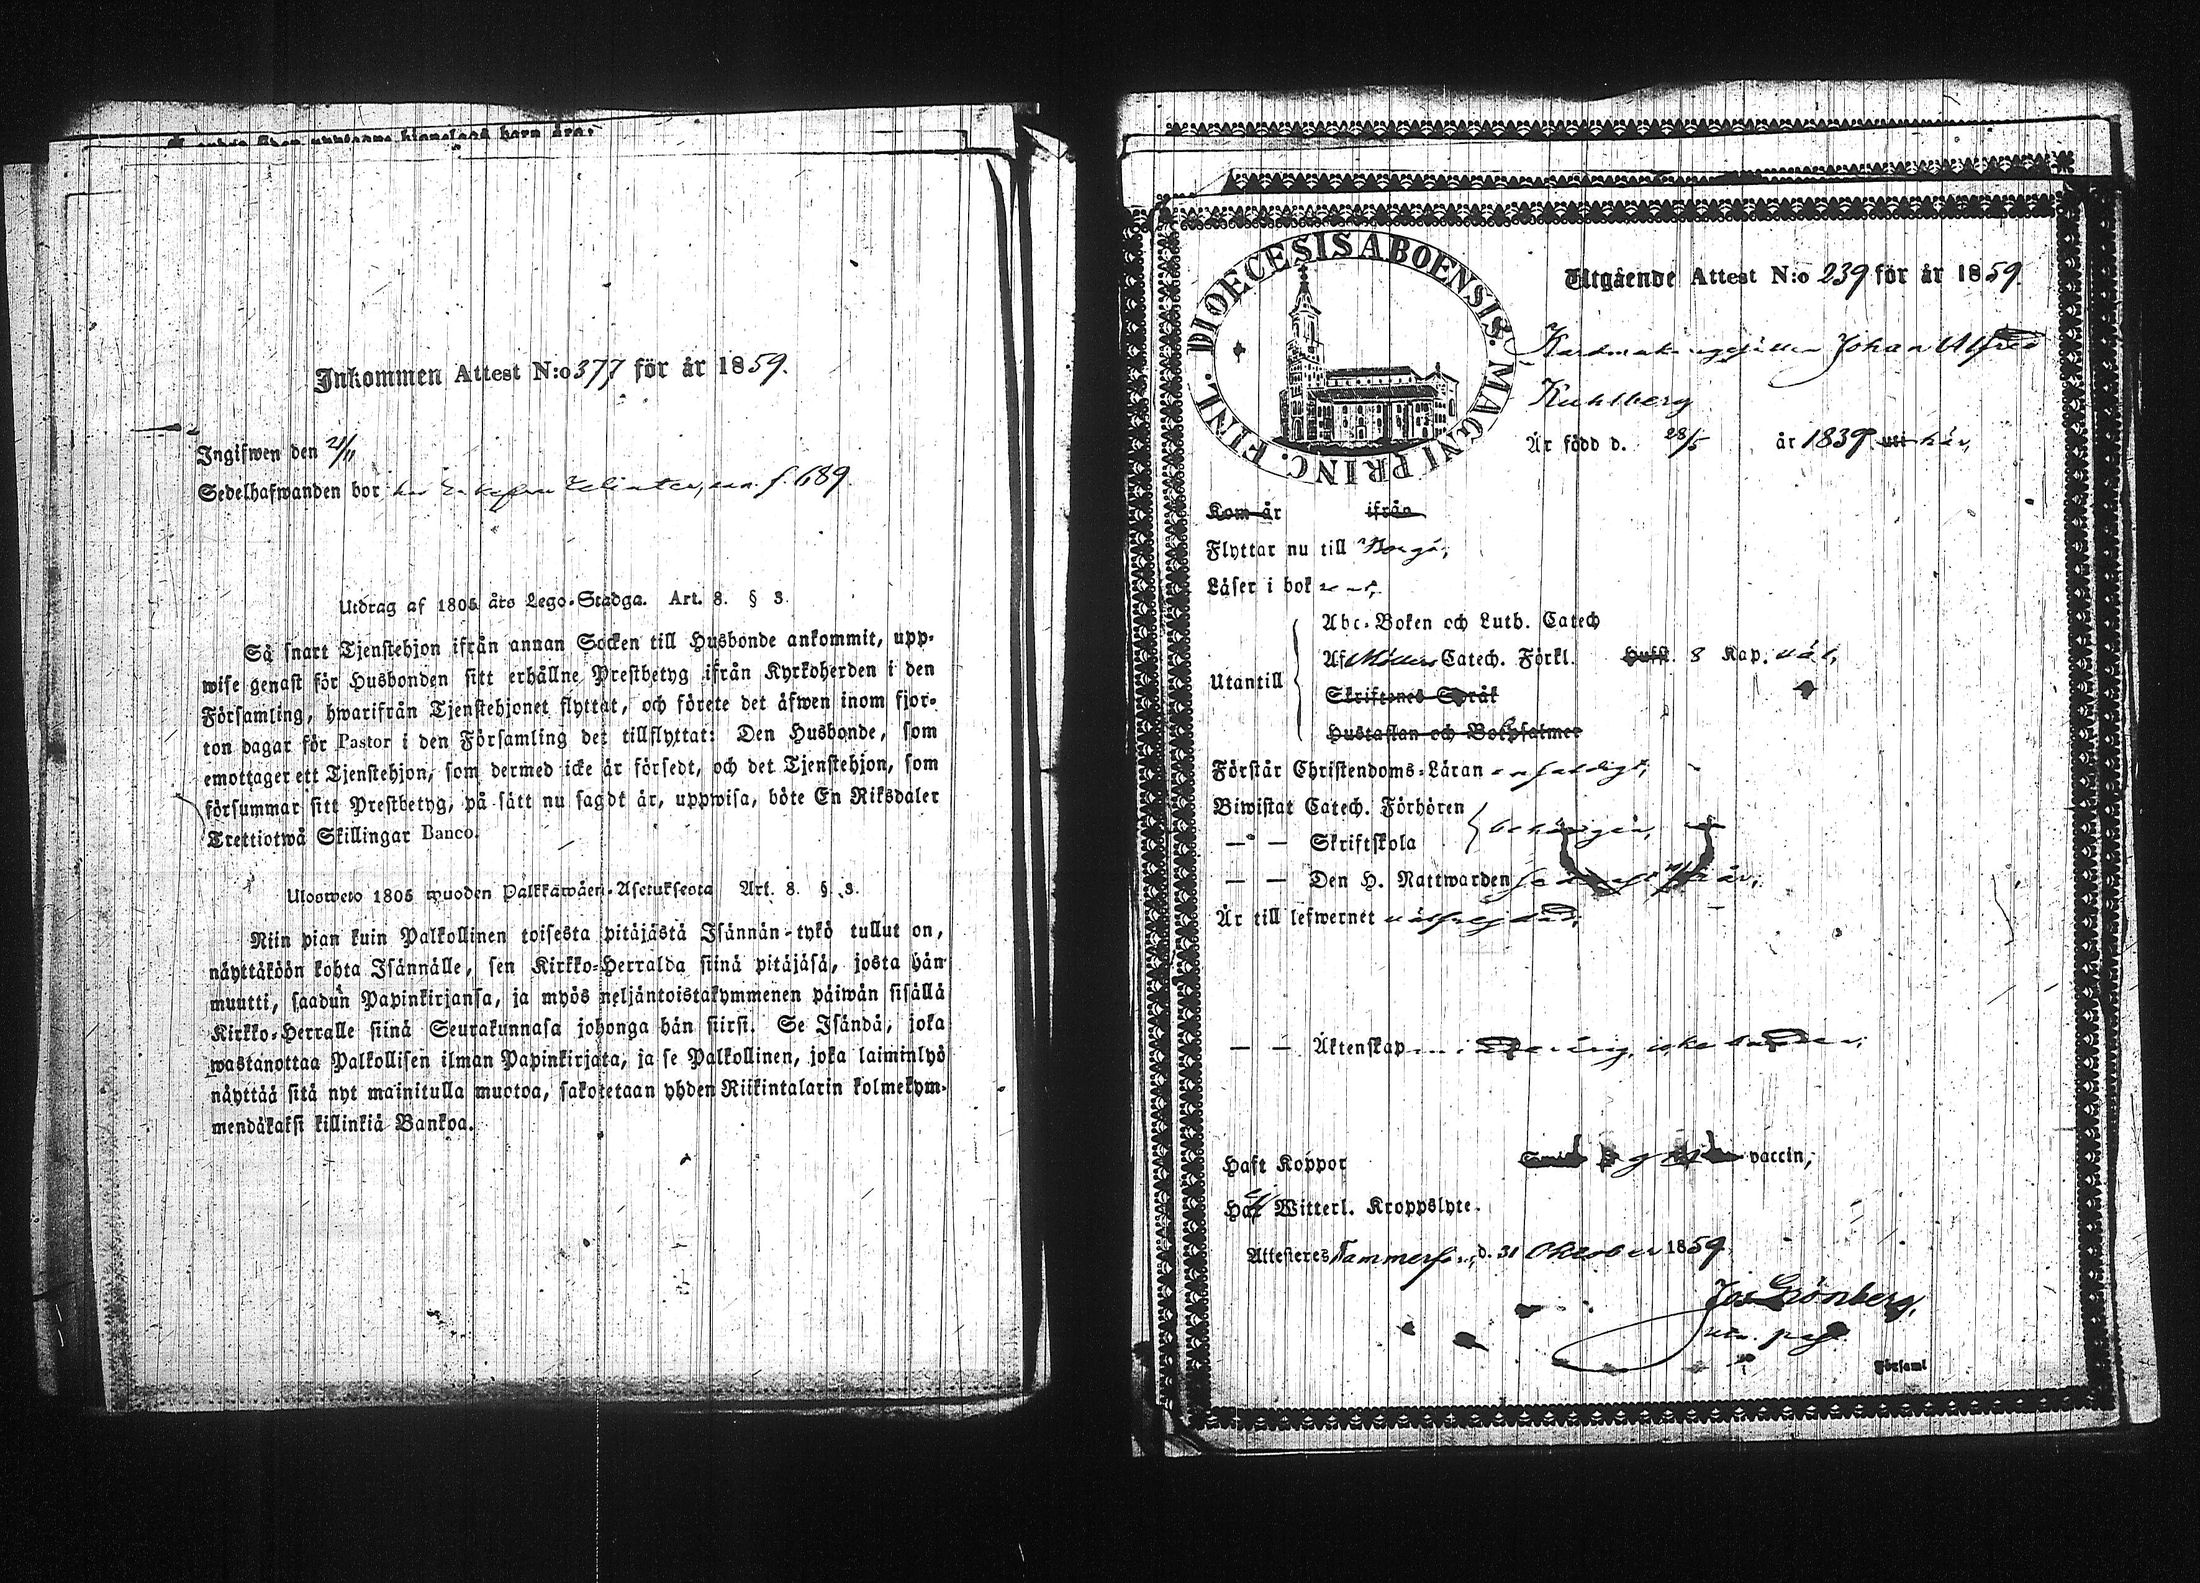 Inkommen Attest N:o 377 för år 1859.
Ingifwen den 2/11
Sedelhafwanden bor hos f. 689
Utdrag af 1805 års Lego-Stadga. Art. 8. § 3.
Så snart Tjenstehjon ifrån annan Socken till Husbonde ankommit, upp-
wise genast för Husbonden sitt erhållne Prestbetyg ifrån Kyrkoherden i den
Församling, hwarifrån Tjenstehjonet flyttat, och förete det äfwen inom fjor-
ton dagar för Pastor i den Församling det tillflyttat: Den Husbonde, som
emottager ett Tjenstehjon, som dermed icke är försedt, och det Tjenstehjon, som
försummar sitt Prestbetyg, på sätt nu sagdt är, uppwisa, böte En Riksdaler
Trettiotwå Skillingar Banco.
Ulosweto 1805 wuoden Palkkawäen-Asetuksesta Art. 8. §. 3.
Niin pian kuin Palkollinen toisesta pitäjästä Isännän-tykö tullut on,
näyttäköön kohta Isännälle, sen Kirkko-Herralda siinä pitäjäsä, josta hän
muutti, saadun Papinkirjansa, ja myös neljäntoistakymmenen päiwän sisällä
Kirkko-Herralle siinä Seurakunnasa johonga hän siirsi. Se Isändä, joka
wastanottaa Palkollisen ilman Papinkirjata, ja se Palkollinen, joka laiminlyö
näyttää sitä nyt mainitulla muotoa, sakotetaan yhden Riikintalarin kolmekym-
mendäkaksi killinkiä Bankoa.
DIOECESIS ABOENSIS. MAGNI PRINC. FINL.
Utgående Attest N:o 239 för år 1859.
Johan Alfred
Kuhlberg
Är född d. 28/5 år 1839 uti här,
Kom år ifrån
Flyttar nu till Borgå,
Läser i bok
Abc-Boken och Luth. Catech
Utantill
Af Möllers Catech. Förkl. Husst. 8 Kap. väl,
Skriftenes Språk
Hustaflan och Botpsalmer
Förstår Christendoms-Läran
Biwistat Catech. Förhören
— — Skriftskola behörigen,
— — Den H. Nattwarden
Är till lefwernet
— — Äktenskap
Haft Koppor vaccin,
Har Witterl. Kroppslyte.
Attesteres Tammerfors, d. 31 Oktober 1859
Jos Grönberg,
Församl